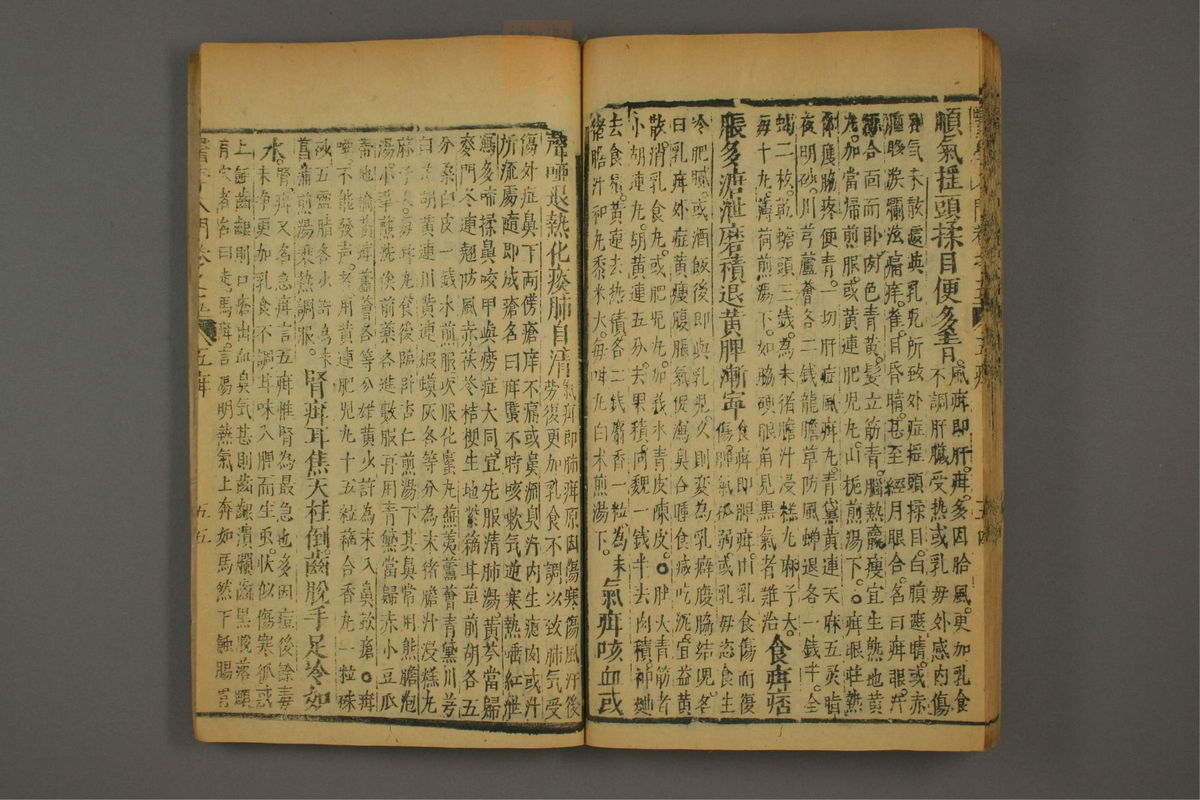 順氣搖頭揉目便多青 風疳即肝疳多因哈風更加乳食
不調肝臟受熱或乳母外感內傷
氣未散處與乳兒所致外症搖頭揉目白膜遮睛或赤
腫眵淚爛泫痛痒雀目昏暗甚至經月眼合名曰疳眼
合面而卧肉色青黃髮立筋青腦熱羸瘦宜生熊地黃
加當歸煎服或黃連肥兒丸山梔煎湯下疳眼壯熱
腹脇疼便青一切肝症風疳丸青黛黃連天麻五灵脂
夜明砂川芎蘆薈各二錢龍膽草防風蟬退各一錢半全
蝎二枚乾蟾頭三錢為末猪膽汁浸糕丸麻子大
每十丸薄荷煎湯下如脇硬眼角見黑氣者難治 食疳痞
脹多溏泄磨積退黃脾漸寧 食疳即脾疳由乳食傷而復
傷脾氣孤弱或乳母恣食生
冷肥膩或酒飯後即與乳兒久則変為乳癖腹脇結児名
曰乳疳外症黃瘦腹脹氣促瀉臭合睡食減吃泥宜益黃
散消乳食丸或肥兒丸加莪朮青皮陳皮○肚大青筋者
小胡連丸胡黃連五分去果積阿魏一錢半去肉積神麯
去食積黃連去熱積各二錢麝香一粒為末
猪膽汁和丸黍米大每卄丸白朮煎湯下 氣疳咳血或
聲啞退熱化痰肺自清 氣疳即肺疳原因傷寒傷風汗後
勞復更加乳食不調以致肺气受
傷外症鼻下兩傍瘡痒不痛或鼻流臭汁內生瘜肉或汁
所流處隨即成瘡名曰疳䘌不時咳嗽气逆寒熱唾紅泄
瀉多啼揉鼻咬甲與癆症大同宜先服清肺湯黃芩當歸
麥門冬連翹防風赤茯苓桔梗生地紫蘇甘草前胡各五
分桑白皮一錢水煎服次服化䘌丸蕪荑蘆薈青黛川芎
白芷胡黃連川黃連蝦蟆灰各等分為末猪膽汁浸糕丸
麻子大每卄丸食後臨卧杏仁煎湯下其鼻常用熊膽泡
湯筆蘸洗後前藥各進數服再用青黛當歸赤小豆瓜
蒂地榆黃連蘆薈各等分雄黃少許為末入鼻歛瘡○疳
啞不能發声者用黃連肥兒丸十五粒蘇合香丸一粒硃
砂五靈脂各少許為末
菖蒲煎湯乗熱調服 腎疳耳焦天柱倒齒脫手足冷如
水 腎疳又名急疳言五疳惟腎為最急也多因痘後餘毒
未淨更加乳食不調甘味入脾而生虫状似傷寒狐或
上蝕齒齦則口瘡出血臭气甚則齒齦潰爛齒黑脫落顋
有穴者名曰走馬疳言陽明熱氣上奔如馬然下蝕腸胃
醫學入門卷之五 五疳 五五